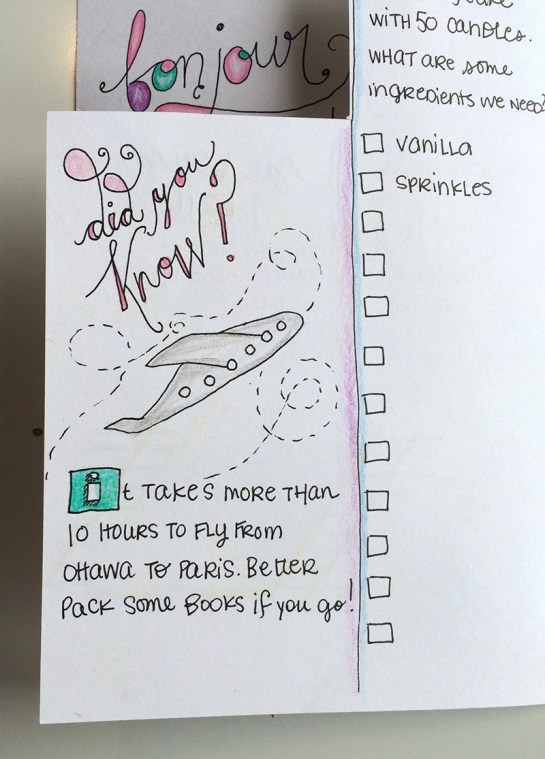 bonjour
did you
know?
it takes more than
10 hours to fly from
Ottawa to Paris. Better
pack some books if you go!
with 50 candles.
what are some
ingredients we need?
vanilla
sprinkles